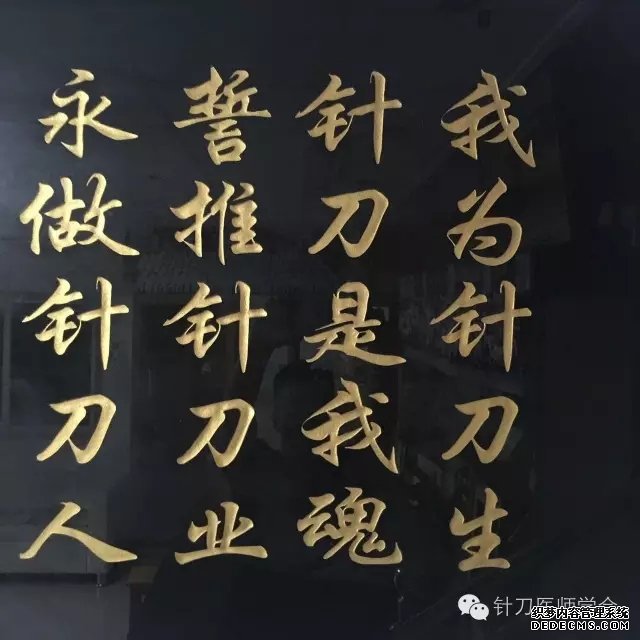 我为针刀生
针刀是我魂
誓推针刀业
永做针刀人
针刀医师学会
织梦内容管理系统
DEDECMS.COM